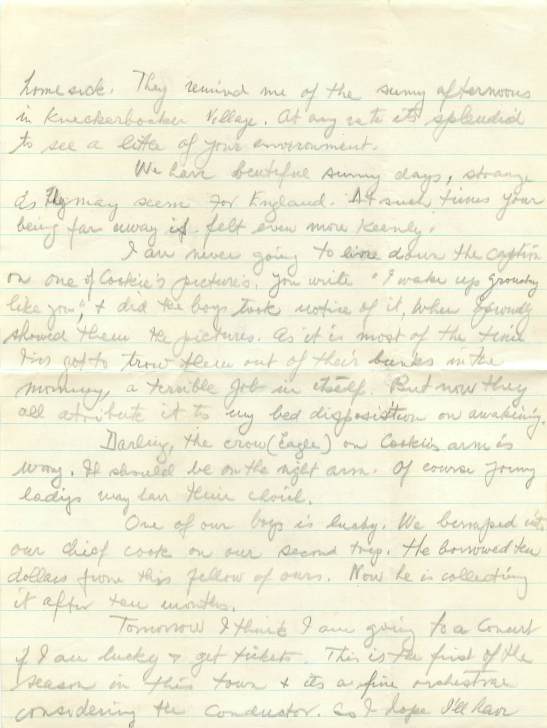 homesick. They remind me of the sunny afternoons
in Kneckerbocker Village. At any rate its splendid
to see a little of your environment.
We have beutiful sunny days, strange
as they may seem for England. At such times your
being far away is felt even more keenly.
I am never going to live down the caption
on one of Cookie's pictures. You write "I wake up grouchy
like you", & did the boys took notice of it, when I proudly
showed them the pictures. As it is most of the time
I've got to trow them out of their bunks in the
morning, a terrible job in itself. But now they
all atribute it to my bed disposistion on awaking.
Darling, the crow (Eagle) on Cookies arm is
wrong. It should be on the right arm. Of course young
ladys may have their choise.
One of our boys is lucky. We bumped into
our chief cook on our second trip. He borrowed ten
dollars from this fellow of ours. Now he is collecting
it after ten months.
Tomorrow I think I am going to a Concert
if I am lucky & get tickets. This is the first of the
season in this town & its a fine orchestrae
considering the Conductor. So I hope I'll have